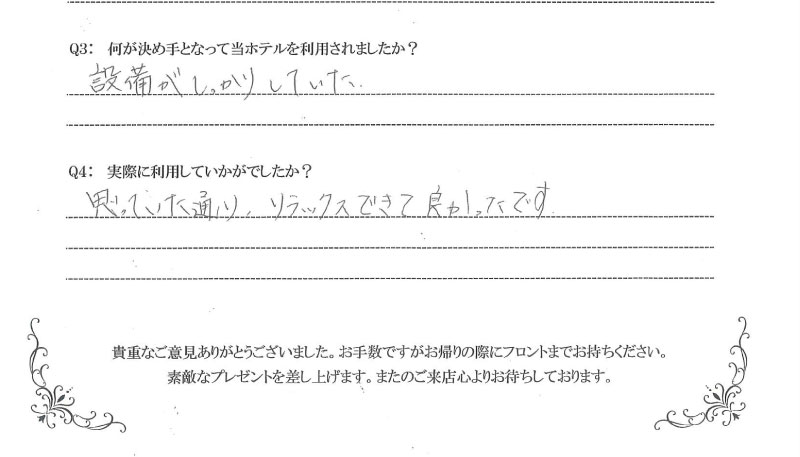 Q3： 何が決め手となって当ホテルを利用されましたか？
設備がしっかりしていた.
Q4： 実際に利用していかがでしたか？
思っていた通り、リラックスできて良かったです.
貴重なご意見ありがとうございました。お手数ですがお帰りの際にフロントまでお持ちください。
素敵なプレゼントを差し上げます。またのご来店心よりお待ちしております。